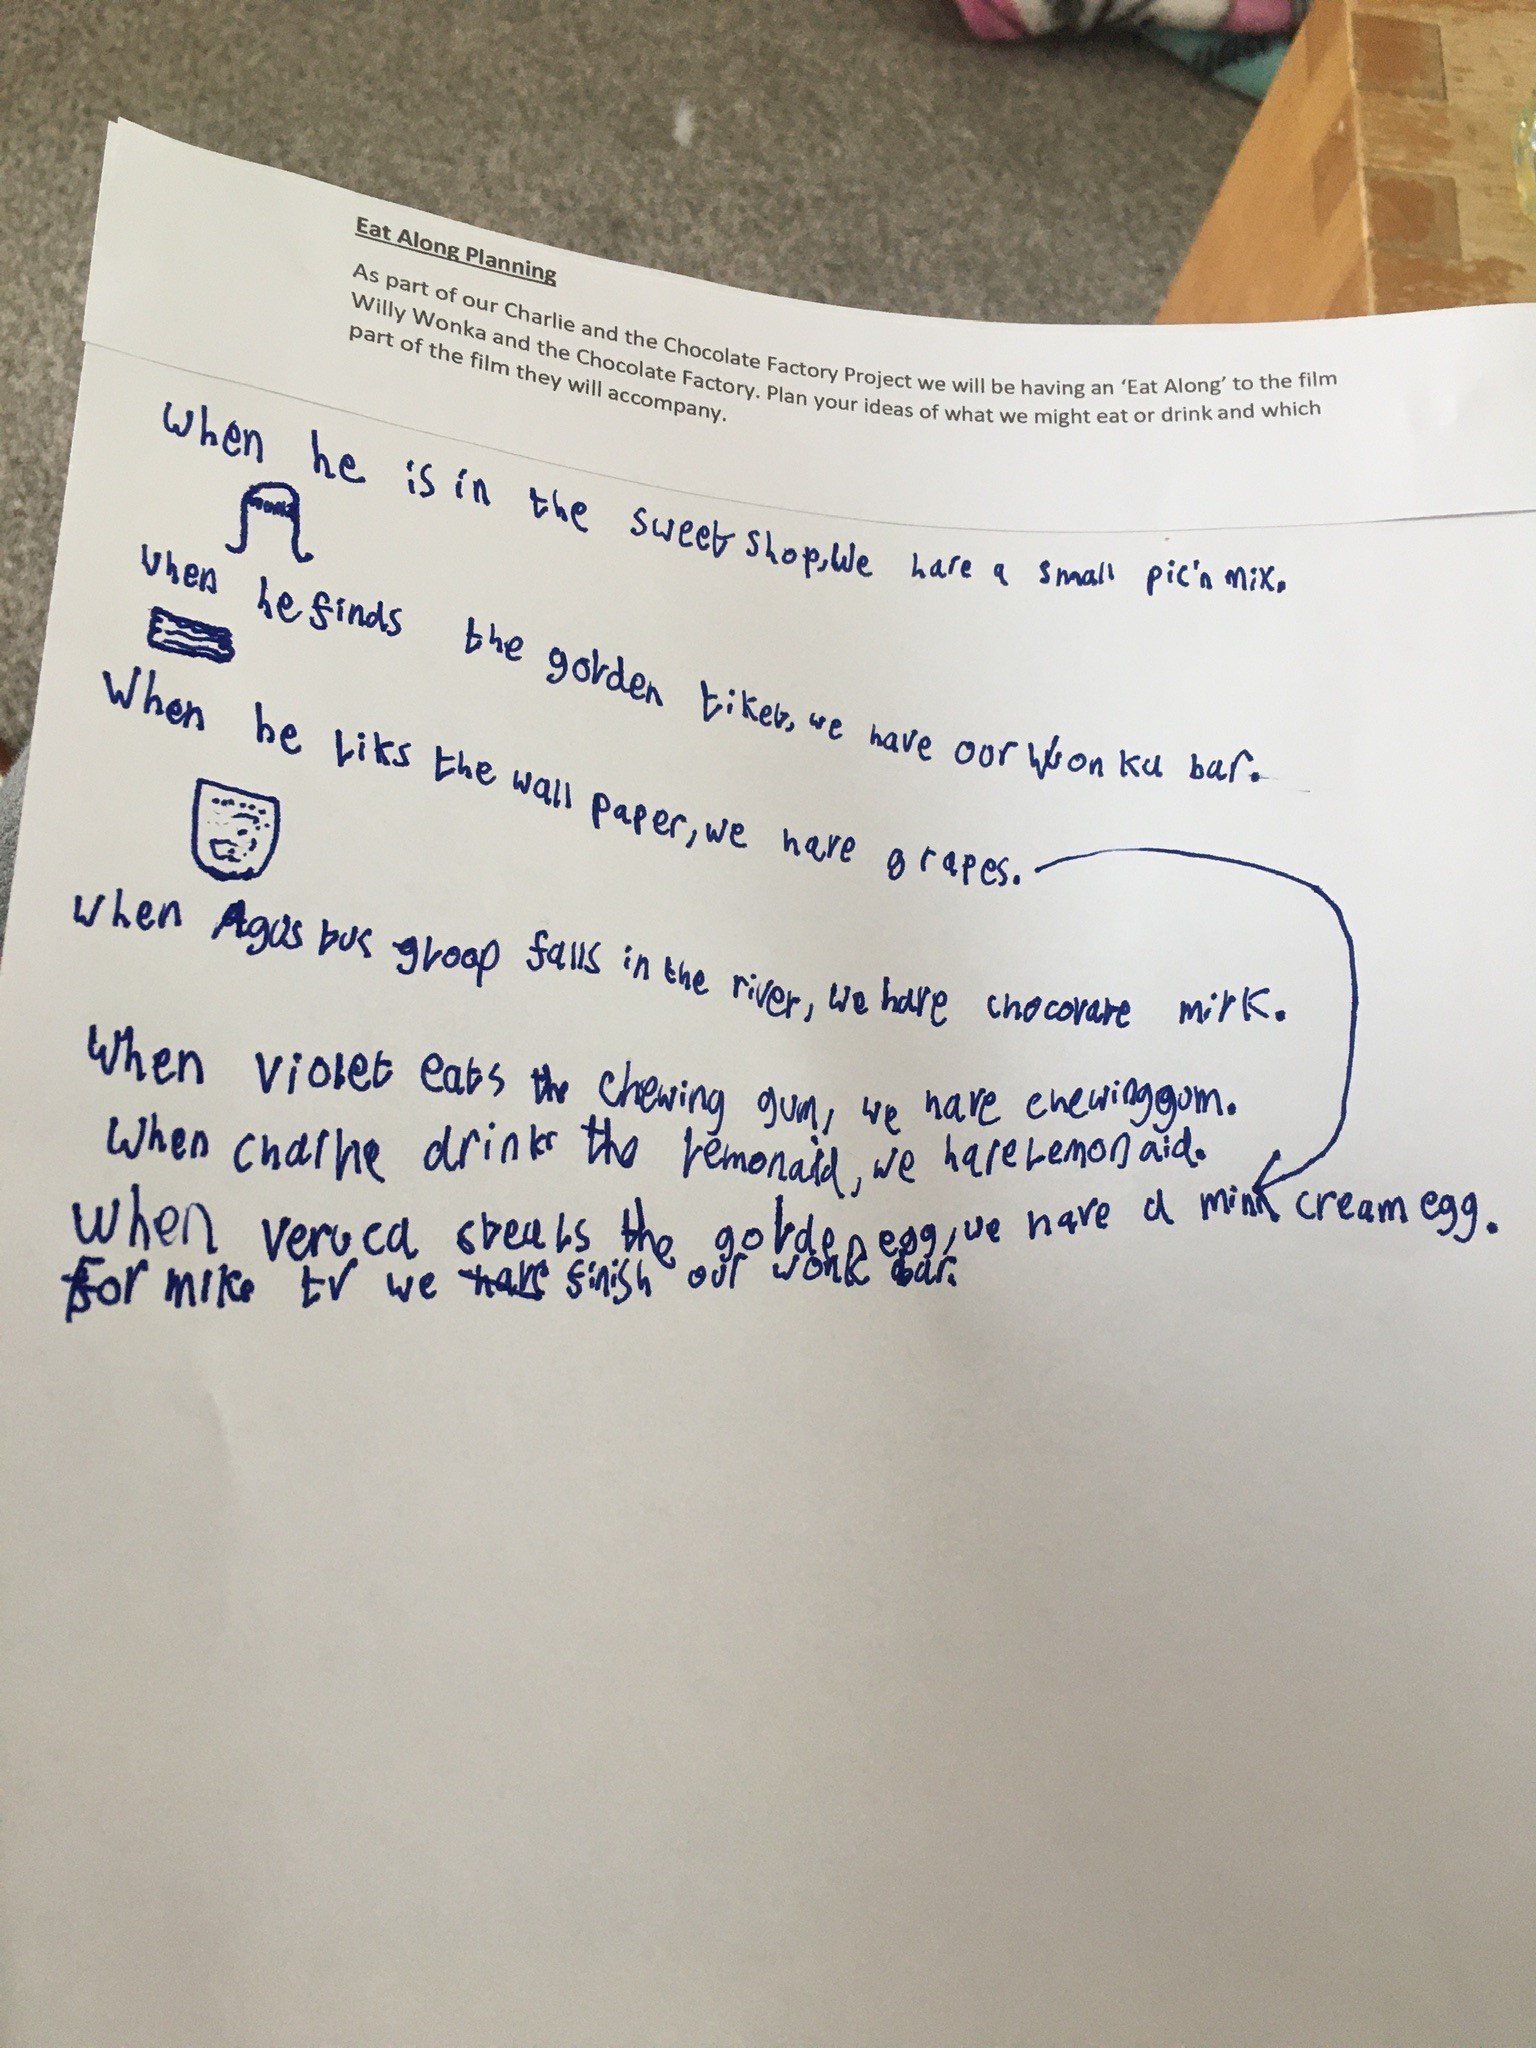 Eat Along Planning
As part of our Charlie and the Chocolate Factory Project we will be having an 'Eat Along' to the film
Willy Wonka and the Chocolate Factory. Plan your ideas of what we might eat or drink and which
part of the film they will accompany.
When he is in the sweet shop, We have a small pic'n mix.
When he finds the golden tiket, we have our Wonka bar.
When he liks the wall paper, we have grapes.
When Agusbus gloop falls in the river, we have chocolate milk.
When Violet eats the chewing gum, we have chewing gum.
When Charlie drinks the lemonaid, we have Lemonaid.
When Veruca steals the golden egg, we have a mini cream egg.
For mike tv we finish our wonk bar.